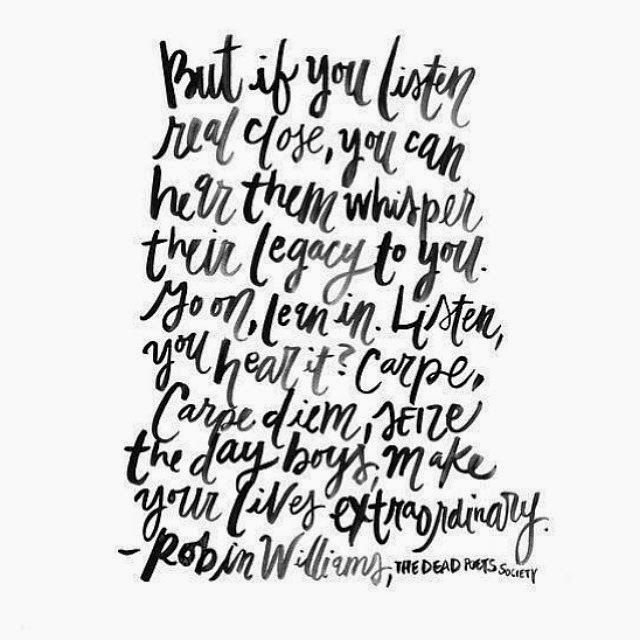 But if you listen
real close, you can
hear them whisper
their legacy to you.
Go on, lean in. Listen,
you hear it? Carpe,
Carpe diem, SEIZE
the day boys, make
your lives extraordinary.
- Robin Williams, THE DEAD POETS SOCIETY